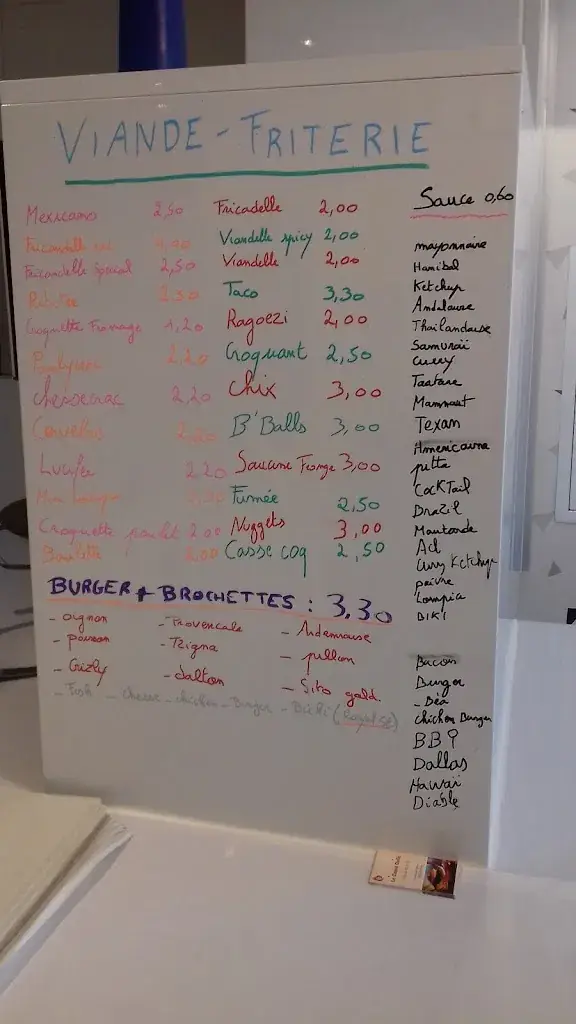 VIANDE-FRITERIE
Mexicano 2,50
Fricandelle Spécial 2,50
Croquette Fromage 1,20
2,20
2,20
Cervelas
Lucifer 2,20
Mini
Croquette poulet 2,00
Boulette 2,00
Fricadelle 2,00
Viandelle spicy 2,00
Viandelle 2,00
Taco 3,30
Ragoezi 2,00
Croquant 2,50
Chix 3,00
B'Balls 3,00
3,00
Fumée 2,50
Nuggets 3,00
Casse coq 2,50
Sauce 0,60
mayonnaise
Hanibal
Ketchup
Andalouse
Thailandaise
Samuraï
Curry
Tartare
Mammout
Texan
Americaine
pitta
CockTail
Brazil
Moutarde
Ail
Curry Ketchup
poivre
Lompia
BIKI
Bacon
Burger
- Béa
chicken Burger
BBQ
Dallas
Hawaï
Diable
BURGER + BROCHETTES : 3,30
- oignon - Provencale - Ardennaise
- poisson - Tzigna
- Grizly - dalton - Sito gold.
- Fish - Cheese - chicken - Burger - Bicki (Royal 5€)